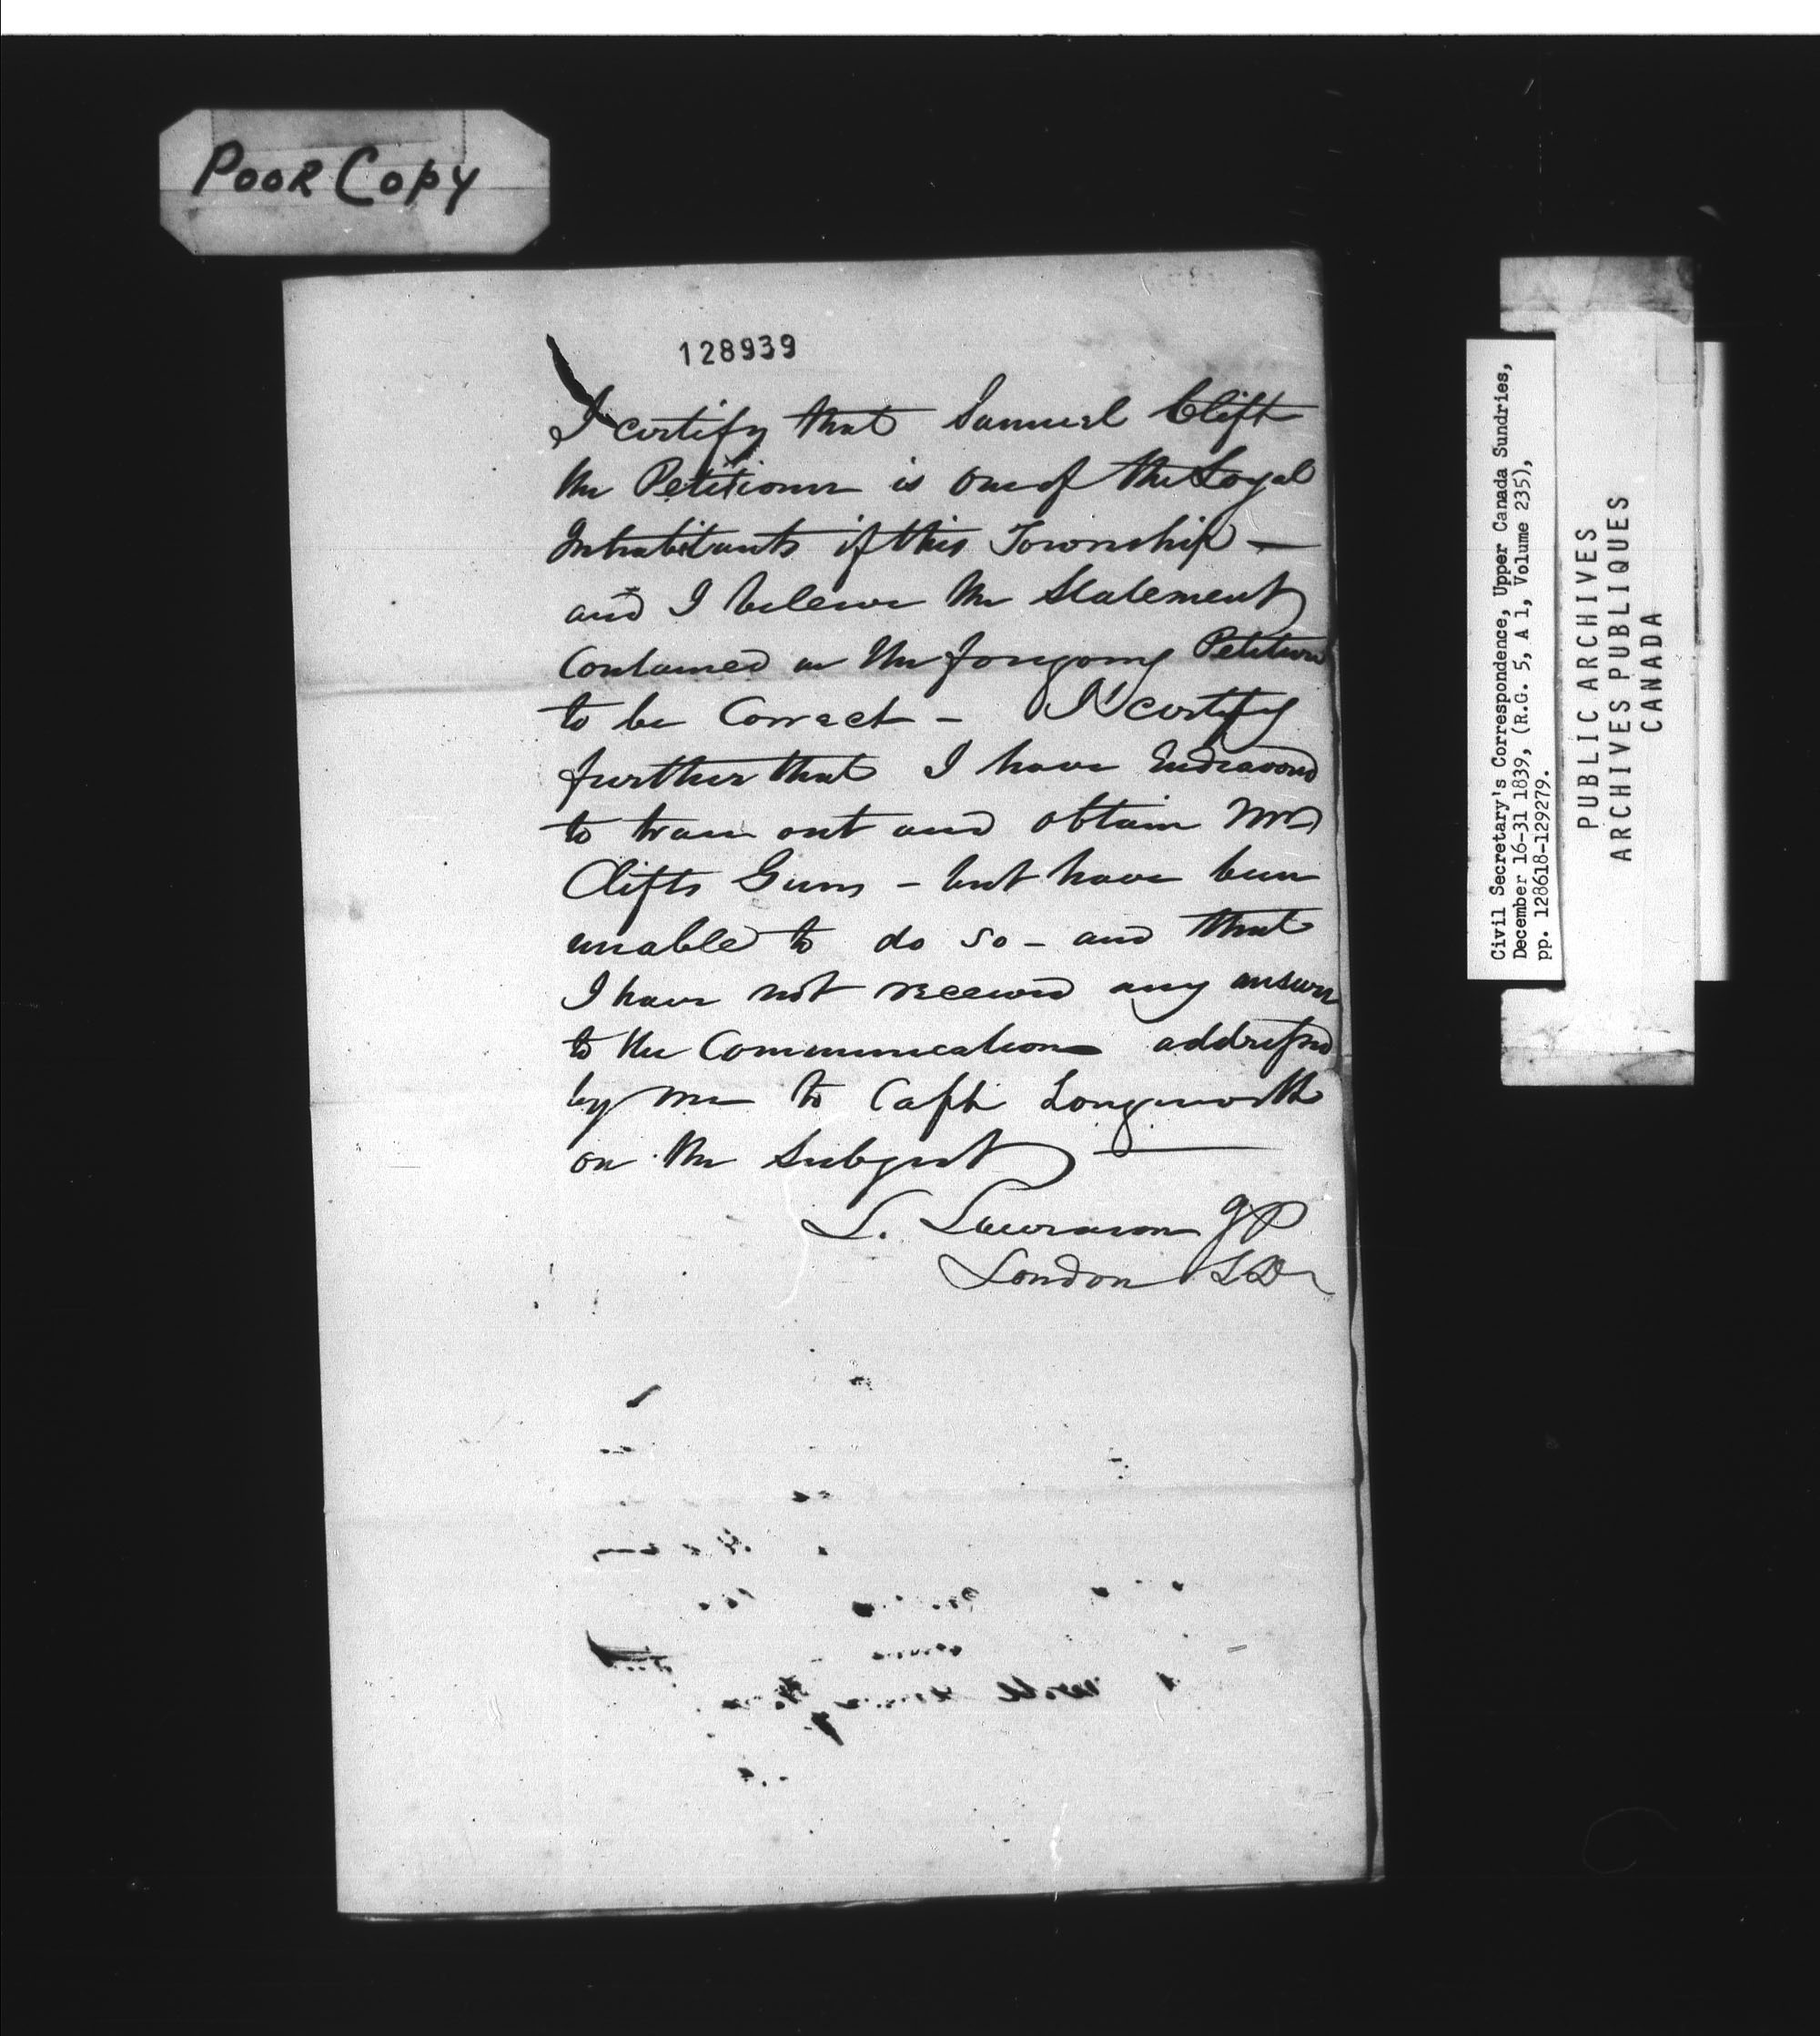 Poor Copy
128939
I certify that Samuel Clift
the Petitioner is one of the Loyal
Inhabitants of this Township —
and I beleive the Statement
Contained in the foregoing Petition
to be Correct – I certify
further that I have Endeavord
to trace out and obtain Mr
Clifts Guns – but have been
unable to do so – and that
I have not received any answer
to the Communication addressed
by me to Capt Longworth
on the Subject —
L. Lawrason JP
London LD
Civil Secretary's Correspondence, Upper Canada Sundries,
December 16-31 1839, (R.G. 5, A 1, Volume 235),
pp. 128618-129279.
PUBLIC ARCHIVES
ARCHIVES PUBLIQUES
CANADA